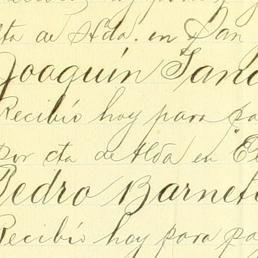 cta de Hda. en San
Joaquín Sand
Recibio hoy para pa
por cta de Hda en "El
Pedro Barnet
Recibio hoy para pa